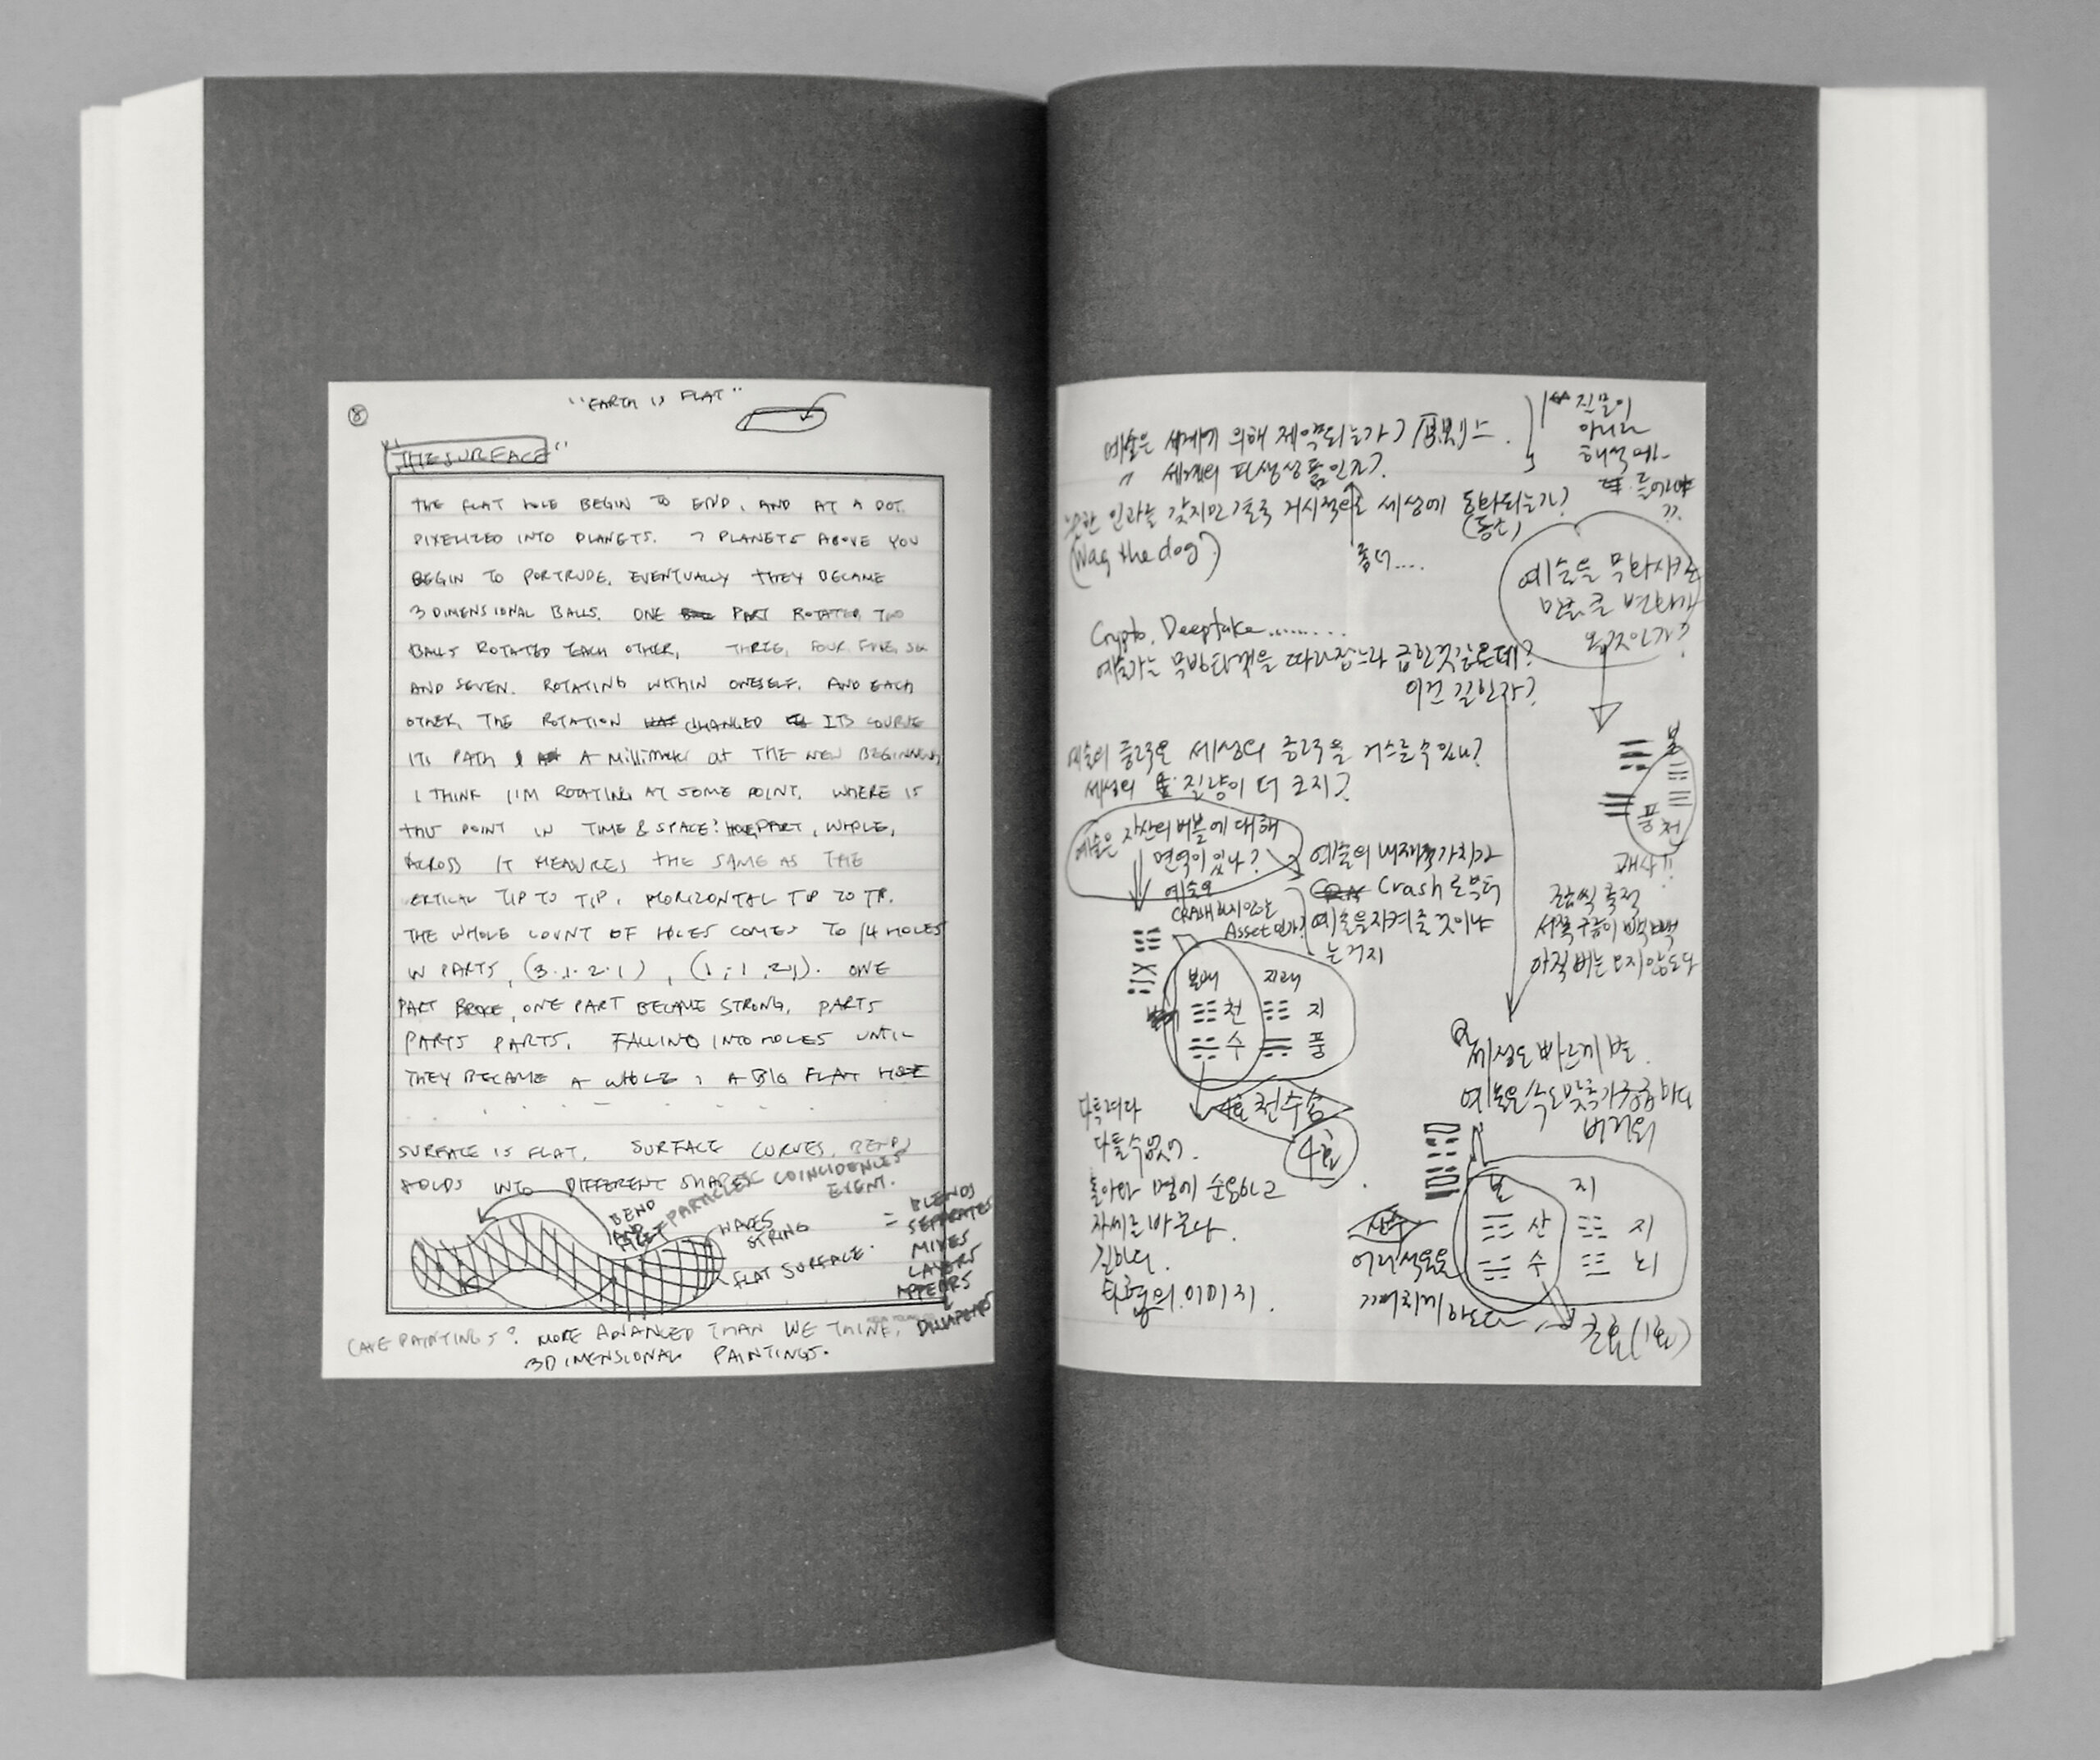 8
"EARTH IS FLAT"
"THE SURFACE"
THE FLAT HOLE BEGIN TO END, AND AT A DOT.
PIXELIZED INTO PLANETS. 7 PLANETS ABOVE YOU
BEGIN TO PORTRUDE. EVENTUALLY THEY BECAME
3 DIMENSIONAL BALLS. ONE PART ROTATED, TWO
BALLS ROTATED EACH OTHER, THREE, FOUR FIVE, SIX
AND SEVEN. ROTATING WITHIN ONESELF. AND EACH
OTHER, THE ROTATION CHANGED ITS COURSE
ITS PATH A MILLIMETER at THE NEW BEGINNING,
I THINK I'M ROTATING AT SOME POINT. WHERE IS
THIS POINT IN TIME & SPACE? PART, WHOLE,
ACROSS IT MEASURES THE SAME AS THE
VERTICAL TIP TO TIP. HORIZONTAL TIP TO TIP.
THE WHOLE COUNT OF HOLES COMES TO 14 HOLES
IN PARTS, (3.1.2.1), (1,1,2,1). ONE
PART BROKE, ONE PART BECAME STRONG, PARTS
PARTS PARTS. FALLING INTO HOLES UNTIL
THEY BECAME A WHOLE, A BIG FLAT HOLE
SURFACE IS FLAT. SURFACE CURVES, BENDS
FOLDS INTO DIFFERENT SHAPES
PARTICLES COINCIDENCES
EVENT.
BEND
AND
MEET
WAVES
STRING
FLAT SURFACE.
= BLENDS
SEPARATES
MIXES
LAYERS
APPEARS
DISAPPEARS
CAVE PAINTINGS? MORE ADVANCED THAN WE THINK,
3DIMENSIONAL PAINTINGS.
예술은 세계에 의해 제약되는가?
" 세계의 파생상품인가?
인과는 갖지만 결국 거시적으로 세상에 동화되는가?
(Wag the dog?)
직물이
아니라
해석에
예술을 무화시킬
만큼 큰 변화가
올 것인가?
Crypto, Deepfake.........
예술가는 후방타격을 따라잡느라 급한것같은데?
이건 길한가?
예술의 중력은 세상의 중력을 거스를수있나?
세상의 질량이 더 크지?
예술은 자산의 버블에 대해
면역이 있나?
예술은
CRASH 되지 않는
Asset 인가?
예술의 내재적 가치가
Crash 로부터
예술을 지켜줄 것이냐
는 거지
풍 천
본괘 지괘
천 지
수 풍
천수송
4효
다투려다
다툴수없어.
돌아와 명에 순응하고
자세를 바꾼다.
길하다.
타협의 이미지.
조금씩 축적
서쪽 구름이 빽빽
아직 비는 오지 않는다
Q. 세상은 빠르게 변.
예술은 속도 맞추기 급급하다
버리워
본 지
산 지
수 뇌
산수
어리석음을
깨우치게 하는
초효(1효)